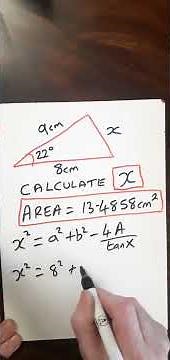 9cm
x
22°
8cm
CALCULATE x
AREA = 13.4858cm²
x² = a² + b² - 4A/tanx
x² = 8² +